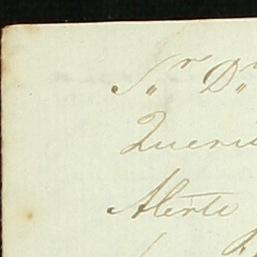 Sr Dr
Queri
Alerte